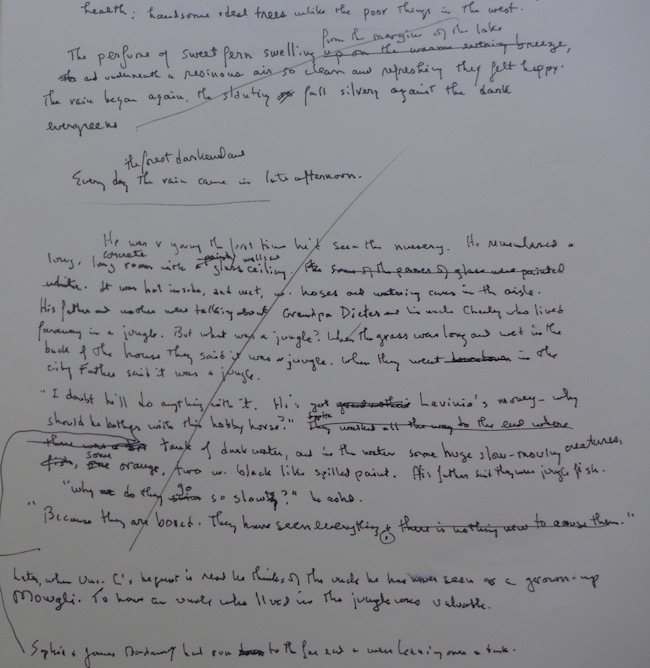 health; handsome ideal trees unlike the poor things in the west.
from the margin of the lake
The perfume of sweet fern swelling up on the warm evening breeze,
and underneath a resinous air so clean and refreshing they felt happy.
The rain began again, the slanting fall silvery against the dark
evergreens
the forest darkened and
Every day the rain came in late afternoon.
He was v young the first time he'd seen the nursery. He remembered a
concrete walls
long, long room with a glass ceiling. The some of the panes of glass were painted
white. It was hot inside, and wet, w. hoses and watering cans in the aisle.
His father and mother were talking about Grandpa Dieter and his uncle Charley who lived
faraway in a jungle. But what was a jungle? When the grass was long and wet in the
back of the house they said it was a jungle. When they went downtown in the
city Father said it was a jungle.
"I doubt he'll do anything with it. He's got Lavinia's money – why
should he bother with this hobby horse?" They walked all the way to the end where
there was a tank of dark water, and in the water some huge slow-moving creatures,
fish, some orange, two w. black like spilled paint. His father said they were jungle fish.
go
"Why do they so slow?" he asked.
"Because they are bored. They have seen everything & there is nothing new to amuse them."
Later, when C's bequest is read he thinks of the uncle he has never seen as a grown-up
Mowgli. To have an uncle who lived in the jungle was valuable.
Sophia & James had run to the far end & were leaning over a tank.